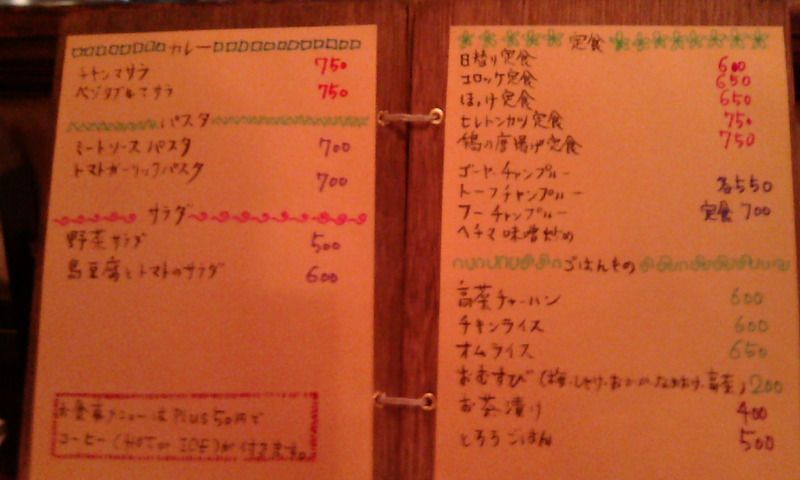 カレー
チキンマサラ 750
ベジタブルマサラ 750
パスタ
ミートソースパスタ 700
トマトガーリックパスタ 700
サラダ
野菜サラダ 500
島豆腐とトマトのサラダ 600
お食事メニューはPLUS50円で
コーヒー(HOT or ICE)が付きます。
定食
日替り定食 600
コロッケ定食 650
ほっけ定食 650
ヒレトンカツ定食 750
鶏の唐揚げ定食 750
ゴーヤーチャンプルー
トーフチャンプルー 各550
フーチャンプルー 定食700
ヘチマ味噌炒め
ごはんもの
高菜チャーハン 600
チキンライス 600
オムライス 650
おむすび(梅、しゃけ、おかか、高菜) 200
お茶漬け 400
とろろごはん 500